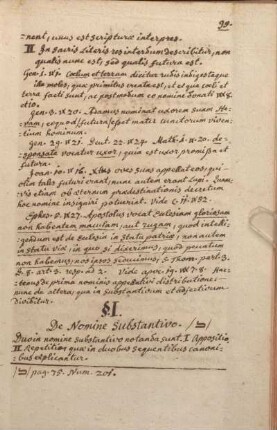 39.
nent, cuius est scripturæ interpres.
III. In sacris literis res interdum describitur, non
qualis nunc est, sed qualis futura est.
Gen. 1. V. 1. Cœlum et terram dicitur rudis indigestaque
illa moles, quæ primitus creata est, et ex qua cœli et
terra facti sunt, ac postmodum et nomine donati V. 8.
et 10.
Gen. 3. V. 20. Adamus nominat uxorem suam He-
vam, eo quod futura esset mater cunctorum viven-
tium hominum.
Gen. 29. V. 21. Deut. 22. V. 24. Math. 1. V. 20. de-
sponsata vocatur uxor, quia est uxor promissa et
futura.
Joan. 10. V. 16. Christus oves suas appellat eos, qui
olim tales futuri erant, nunc autem erant Lupi. Quam-
vis etiam ob æternum prædestinationis decretum
hoc nomine insigniri potuerint. Vide C. H. V. 52.
Ephes. 5. V. 27. Apostolus vocat Ecclesiam gloriosam
non habentem maculam, aut rugam, quod intelli-
gendum est de Ecclesia in statu patriæ, non autem
in statu viæ, in quo si dixerimus, quod peccatum
non habemus, nos ipsos seducimus. S. Thom. part. 3.
q. 8. art. 3. resp. ad 2. Hac-
tenus de prima nominis appellativi distributione;
nunc de altera, qua in substantivum et adjectivum
dividitur.
§ I.
De Nomine Substantivo.
Duo in nomine substantivo notanda sunt. I. Appositio,
II. Repetitio, quæ in duobus sequentibus canoni-
bus explicantur.
pag. 75. Num. 201.